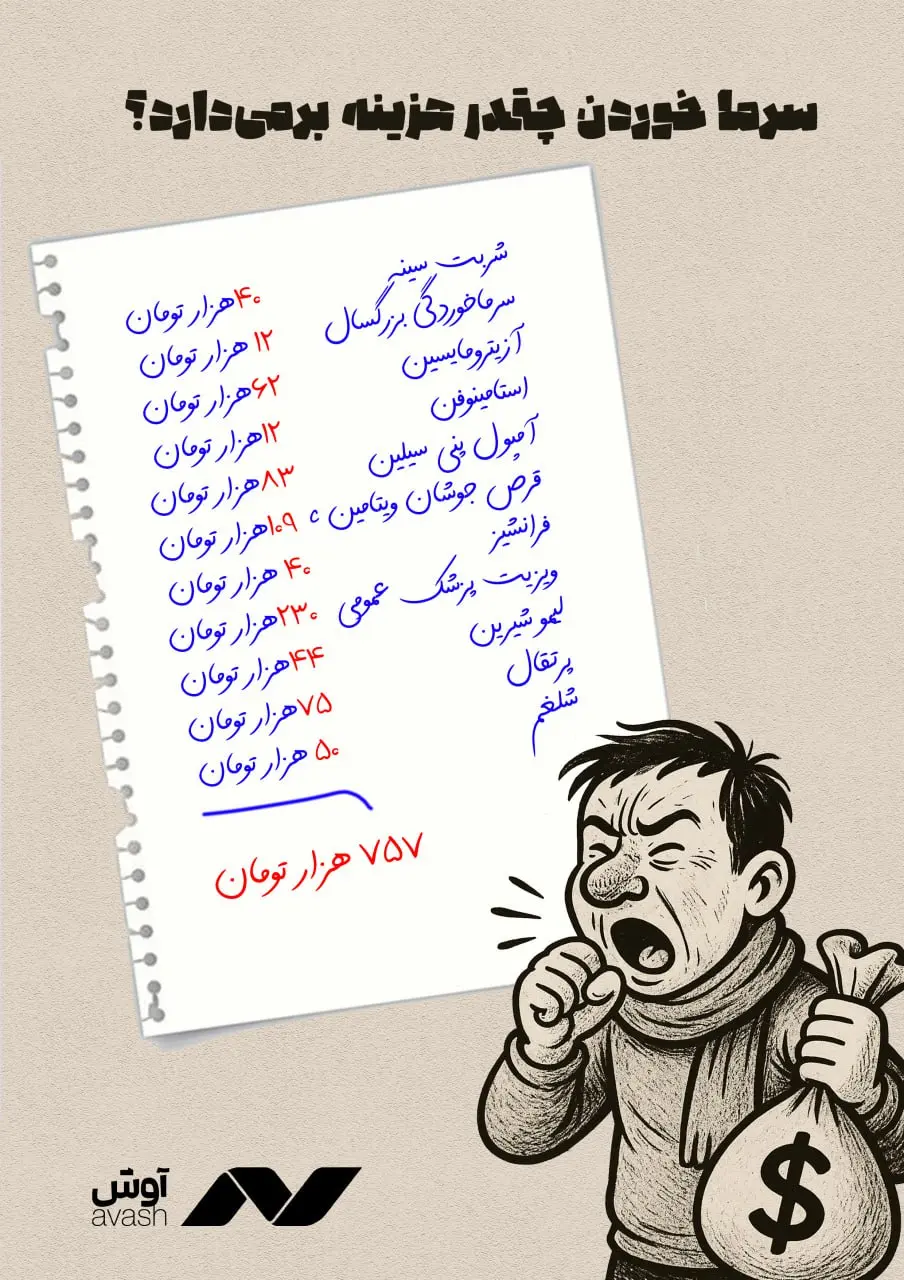 سرما خوردن چقدر هزینه برمی‌دارد؟
شربت سینه ۴۰ هزار تومان
سرماخوردگی بزرگسال ۱۲ هزار تومان
آزیترومایسین ۶۲ هزار تومان
استامینوفن ۱۲ هزار تومان
آمپول پنی سیلین ۸۳ هزار تومان
قرص جوشان ویتامین c ۱۰۹ هزار تومان
فرانشیز ۴۰ هزار تومان
ویزیت پزشک عمومی ۲۳۰ هزار تومان
لیمو شیرین ۴۴ هزار تومان
پرتقال ۷۵ هزار تومان
شلغم ۵۰ هزار تومان
۷۵۷ هزار تومان
$
آوش
avash